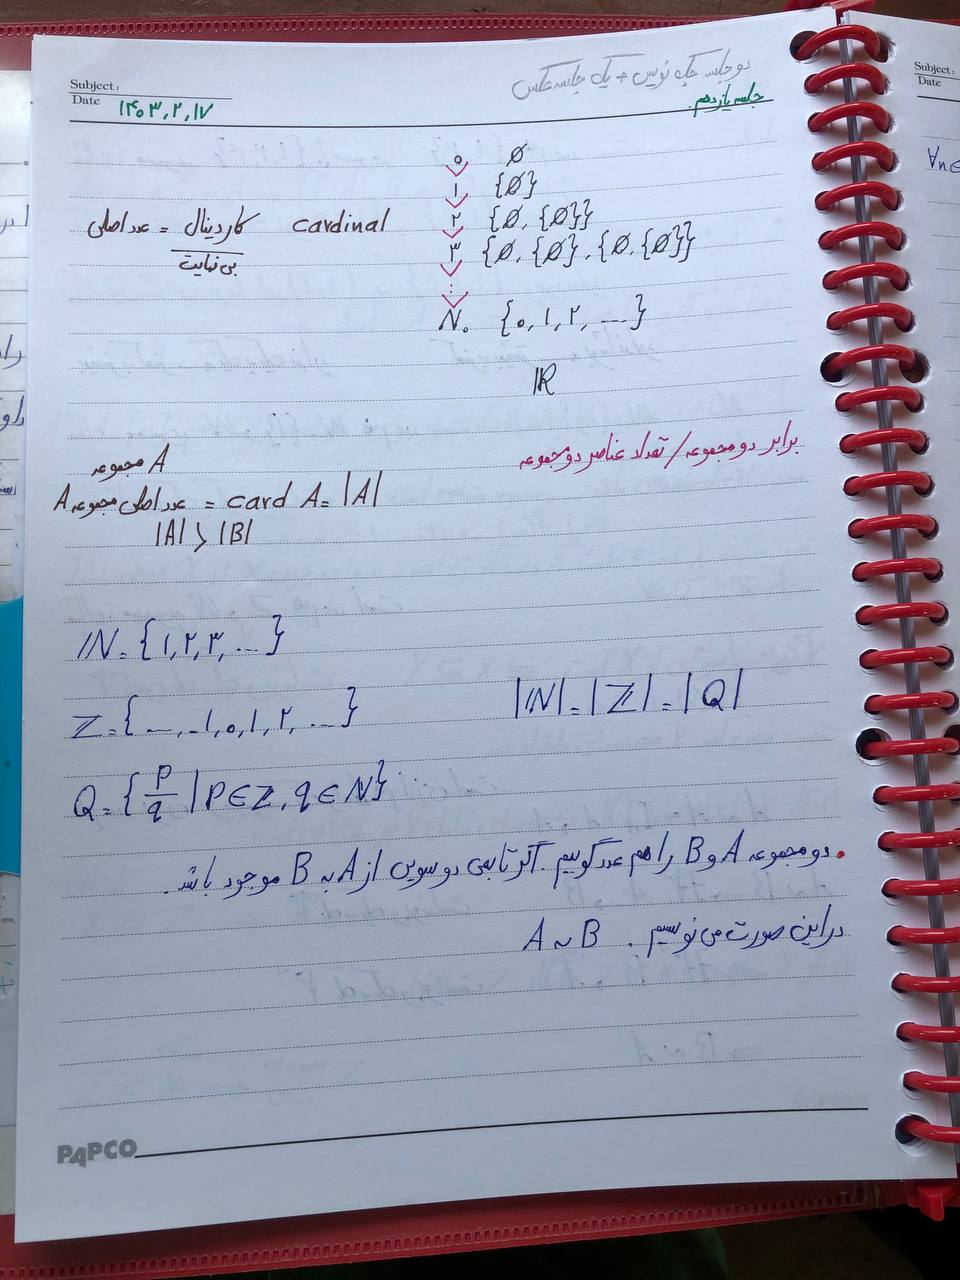 Subject:
Date ۱۴۰۳,۲,۱۷
دو جلسه چک نویس + یک جلسه عکس
جلسه یازدهم.
۰ ∅
۱ {∅}
۲ {∅, {∅}}
۳ {∅, {∅}, {∅, {∅}}
cardinal کاردینال = عدد اصلی
بی نهایت
⋮
N₀ {۰, ۱, ۲, ...}
ℝ
برابر دو مجموعه / تعداد عناصر دو مجموعه
A مجموعه
عدد اصلی مجموعه A = card A = |A|
|A| > |B|
ℕ = {۱, ۲, ۳, ...}
Z = {..., -۱, ۰, ۱, ۲, ...}
|ℕ| = |ℤ| = |Q|
Q = {p/q | p ∈ Z, q ∈ N}
• دو مجموعه A و B را هم عدد گوییم. اگر تابعی دوسویی از A به B موجود باشد.
در این صورت می نویسیم. A ~ B
PAPCO
Subject:
Date
∀n∈